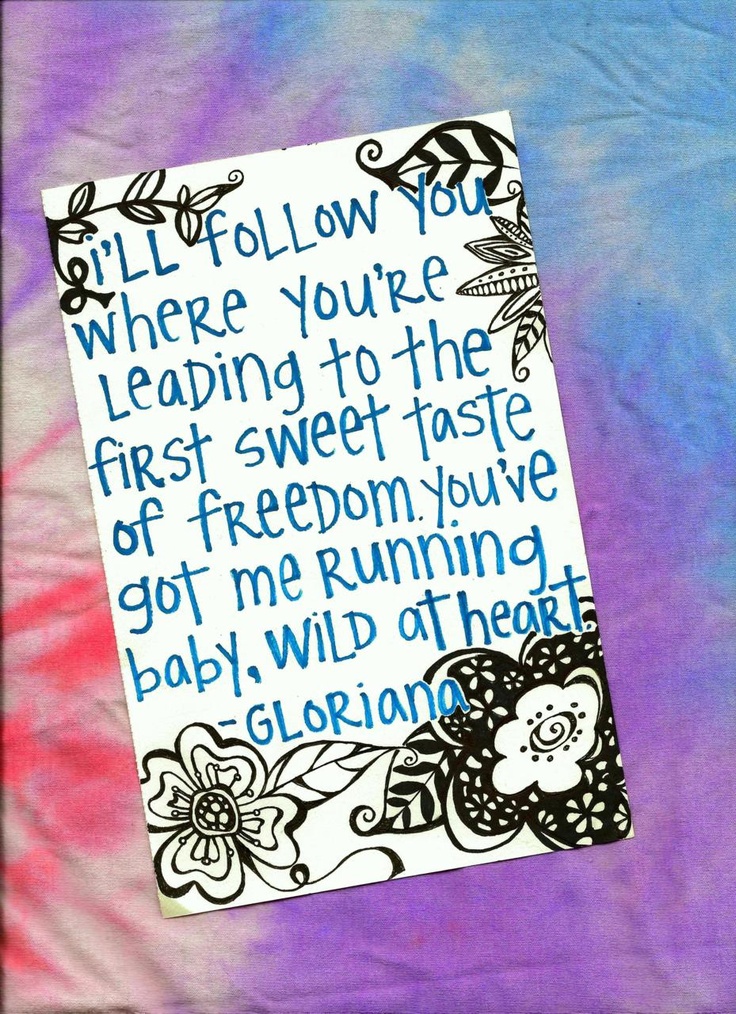 i'LL follow you
where you're
leading to the
first sweet taste
of freedom. you've
got me running
baby, wild at heart.
-Gloriana